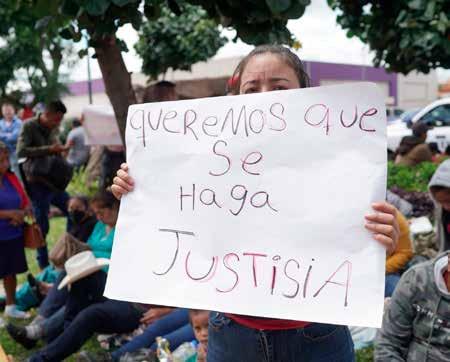 QUEREMOS QUE
Se
Haga
JUSTISIA